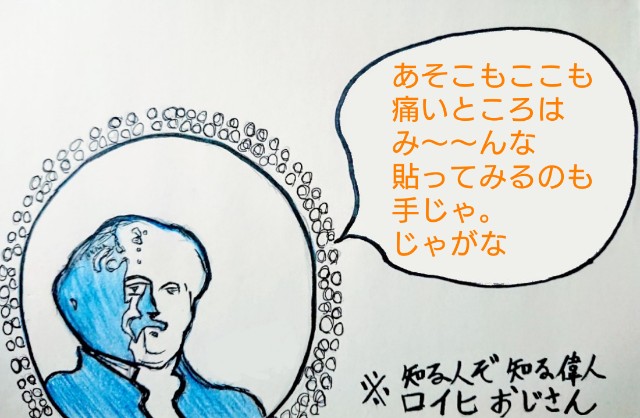 あそこもここも
痛いところは
み〜〜んな
貼ってみるのも
手じゃ。
じゃがな
※ 知る人ぞ知る偉人
ロイヒおじさん